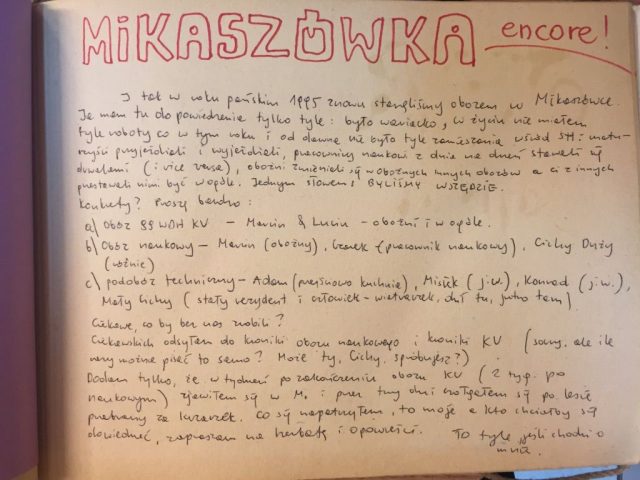 MIKASZÓWKA encore!
I tak w roku pańskim 1995 znowu stanęliśmy obozem w Mikaszówce.
Ja mam tu do powiedzenia tylko tyle: było wariacko, w życiu nie miałem
tyle roboty co w tym roku i od dawna nie było tyle zamieszania wśród SH: matu-
rzyści przyjeżdżali i wyjeżdżali, pracownicy naukowi z dnia na dzień stawali się
druhami (i vice versa), oboźni zmieniali się w oboźnych innych obozów a ci z innych
przestawali nimi być w ogóle. Jednym słowem: BYLIŚMY WSZĘDZIE.
Konkrety? Proszę bardzo:
a) Obóz 99 WDH KV – Marcin & Lucin – oboźni i w ogóle.
b) Obóz naukowy – Marcin (oboźny), Czarek (pracownik naukowy), Cichy Duży
(różnie)
c) podobóz techniczny – Adam (przejściowo kuchnia), Misiek (j.w.), Konrad (j.w.),
Mały Cichy (stały rezydent i człowiek-wiatraczek, dziś tu, jutro tam)
Ciekawe, co by bez nas zrobili?
Ciekawskich odsyłam do kroniki obozu naukowego i kroniki KV (sorry, ale ile
razy można pisać to samo? Może ty, Cichy, spróbujesz?)
Dodam tylko, że w tydzień po zakończeniu obozu KV (2 tyg. po
naukowym) zjawiłem się w M. i przez trzy dni czołgałem się po lesie
przebrany za krzaczek. Co się napatrzyłem, to moje a kto chciałby się
dowiedzieć, zapraszam na herbatę i opowieści. To tyle jeśli chodzi o
mnie.